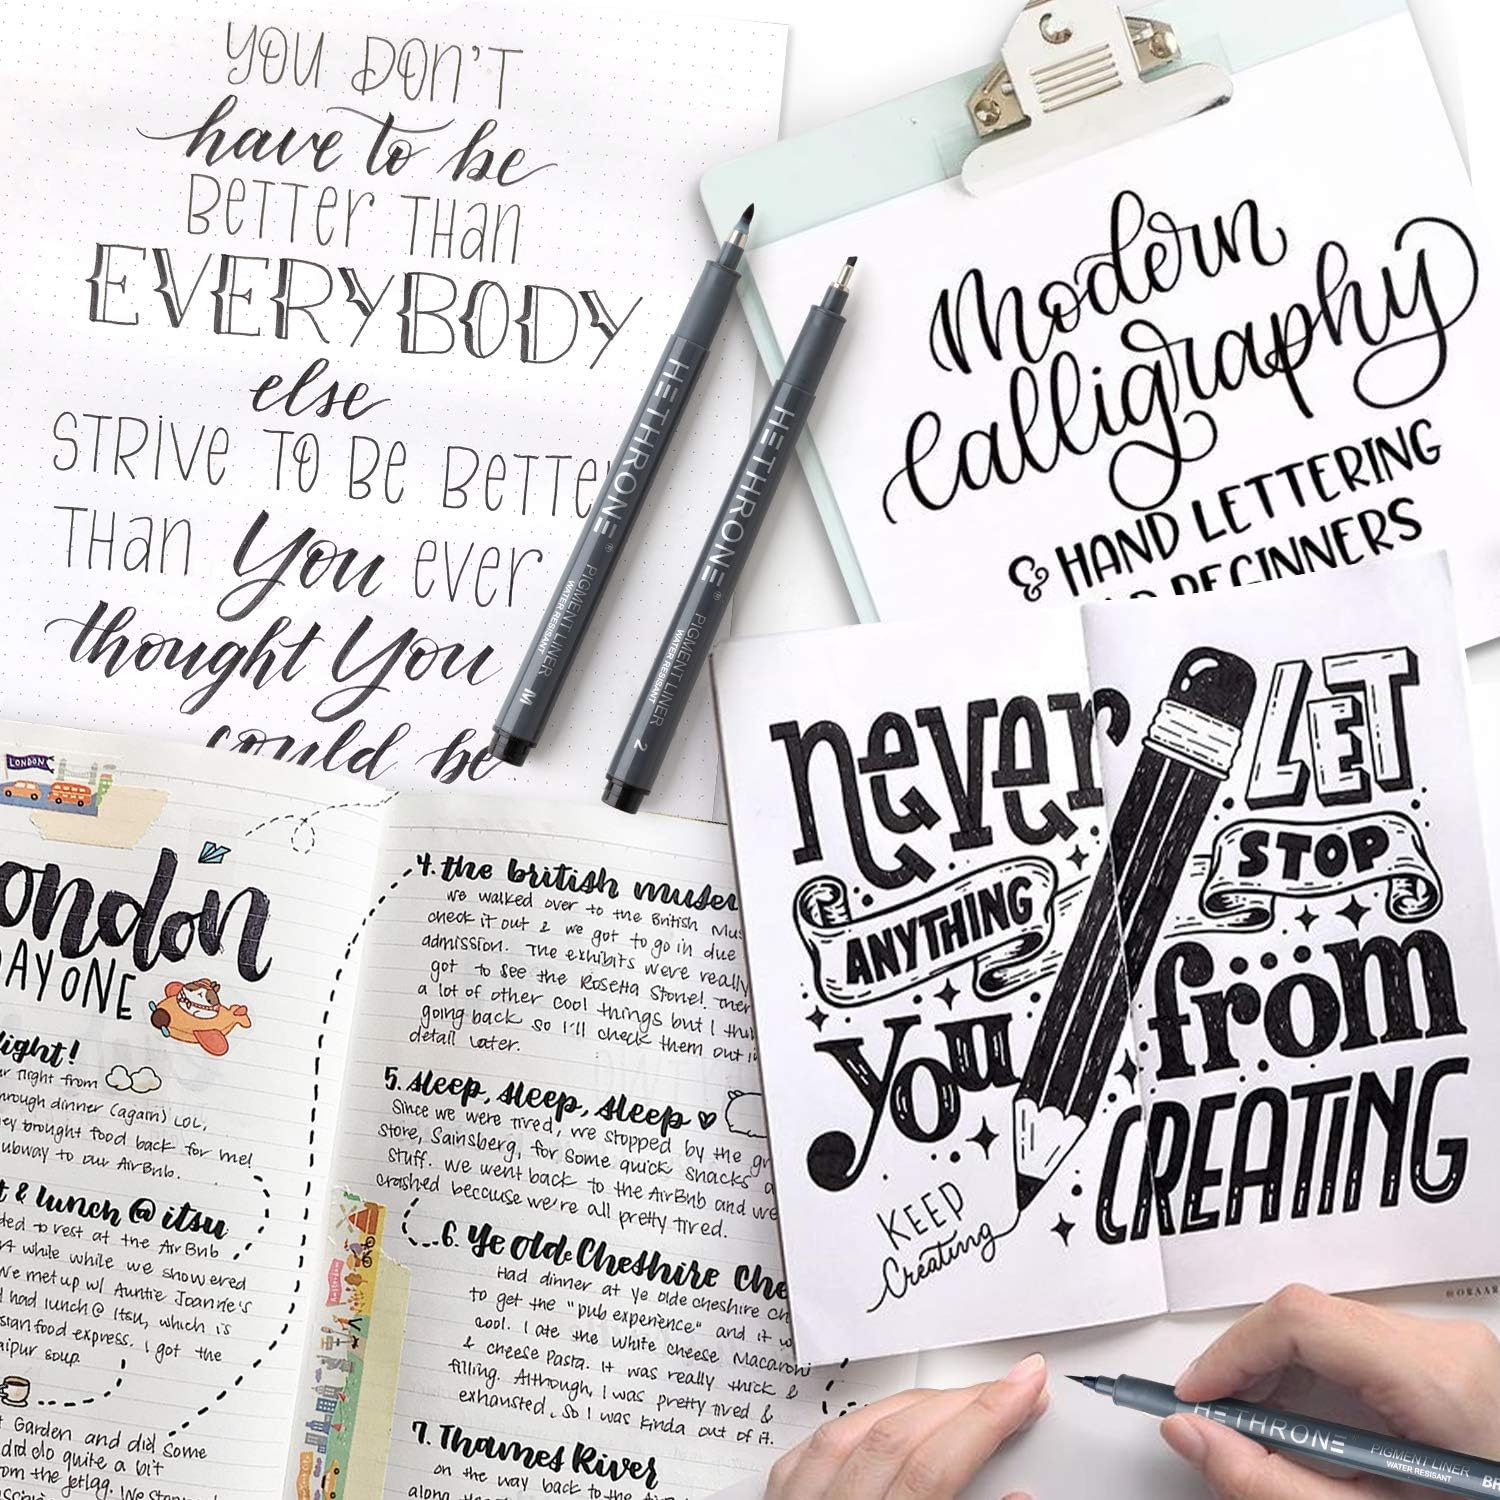 YOU DON'T
have to be
BETTER THAN
EVERYBODY
else
STRIVE TO BE
THAN You ever
thought You
could be
HETHRONE
PIGMENT LINER
WATER RESISANT
M
HETHRONE
PIGMENT LINER
WATER RESISANT
2
Modern
Calligraphy
& HAND LETTERING
BEGINNERS
LONDON
DAY ONE
from
through dinner (again) LOL,
brought food back for me!
to our AirBnb.
& lunch @ itsu
to rest at the AirBnb
while while we showered
We met up w/ Auntie Joanne's
had lunch @ Itsu, which is
food express. I got the
soup.
Garden and did some
did do quite a bit
the jetlag. We
4. the british
we walked over to the British
check it out & we got to go in due
admission. The exhibits were really
got to see the Rosetta Stone!
a lot of other cool things but I
going back so I'll check them out
detail later.
5. sleep, sleep, sleep
Since we were tired, we stopped by the
store, Sainsberg, for some quick snacks
stuff. We went back to the AirBnb and we
crashed because we're all pretty tired.
6. Ye olde Cheshire
Had dinner at ye olde cheshire
to get the "pub experience" and it
cool. I ate the white cheese Macaroni
& cheese Pasta. It was really thick &
filling. Although, I was pretty tired &
exhausted, so I was kinda out of it.
7. Thames River
on the way back to the
along
never LET
ANYTHING STOP
you from
CREATING
KEEP
Creating
HETHRONE
PIGMENT LINER
WATER RESISANT